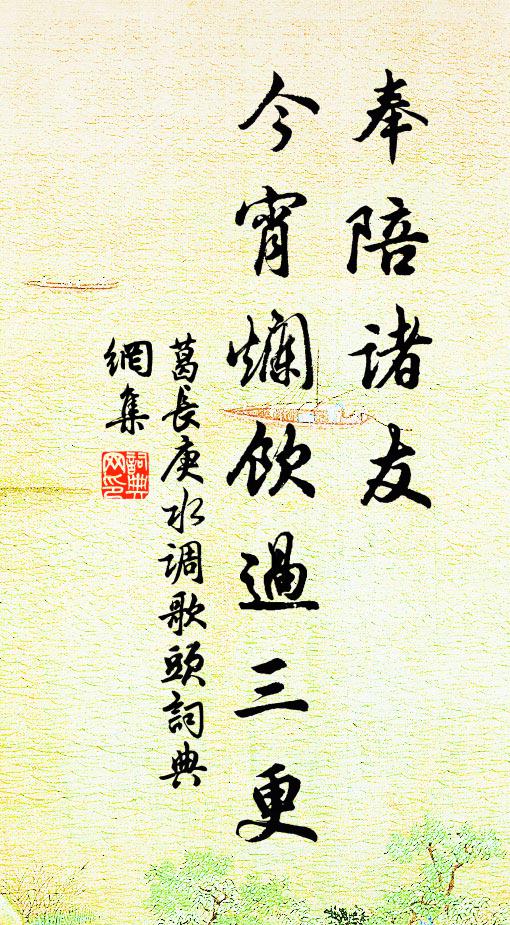 奉陪诸友
今宵爛飲過三更
葛長庚水调歌頭詞典
網集
詞典网印